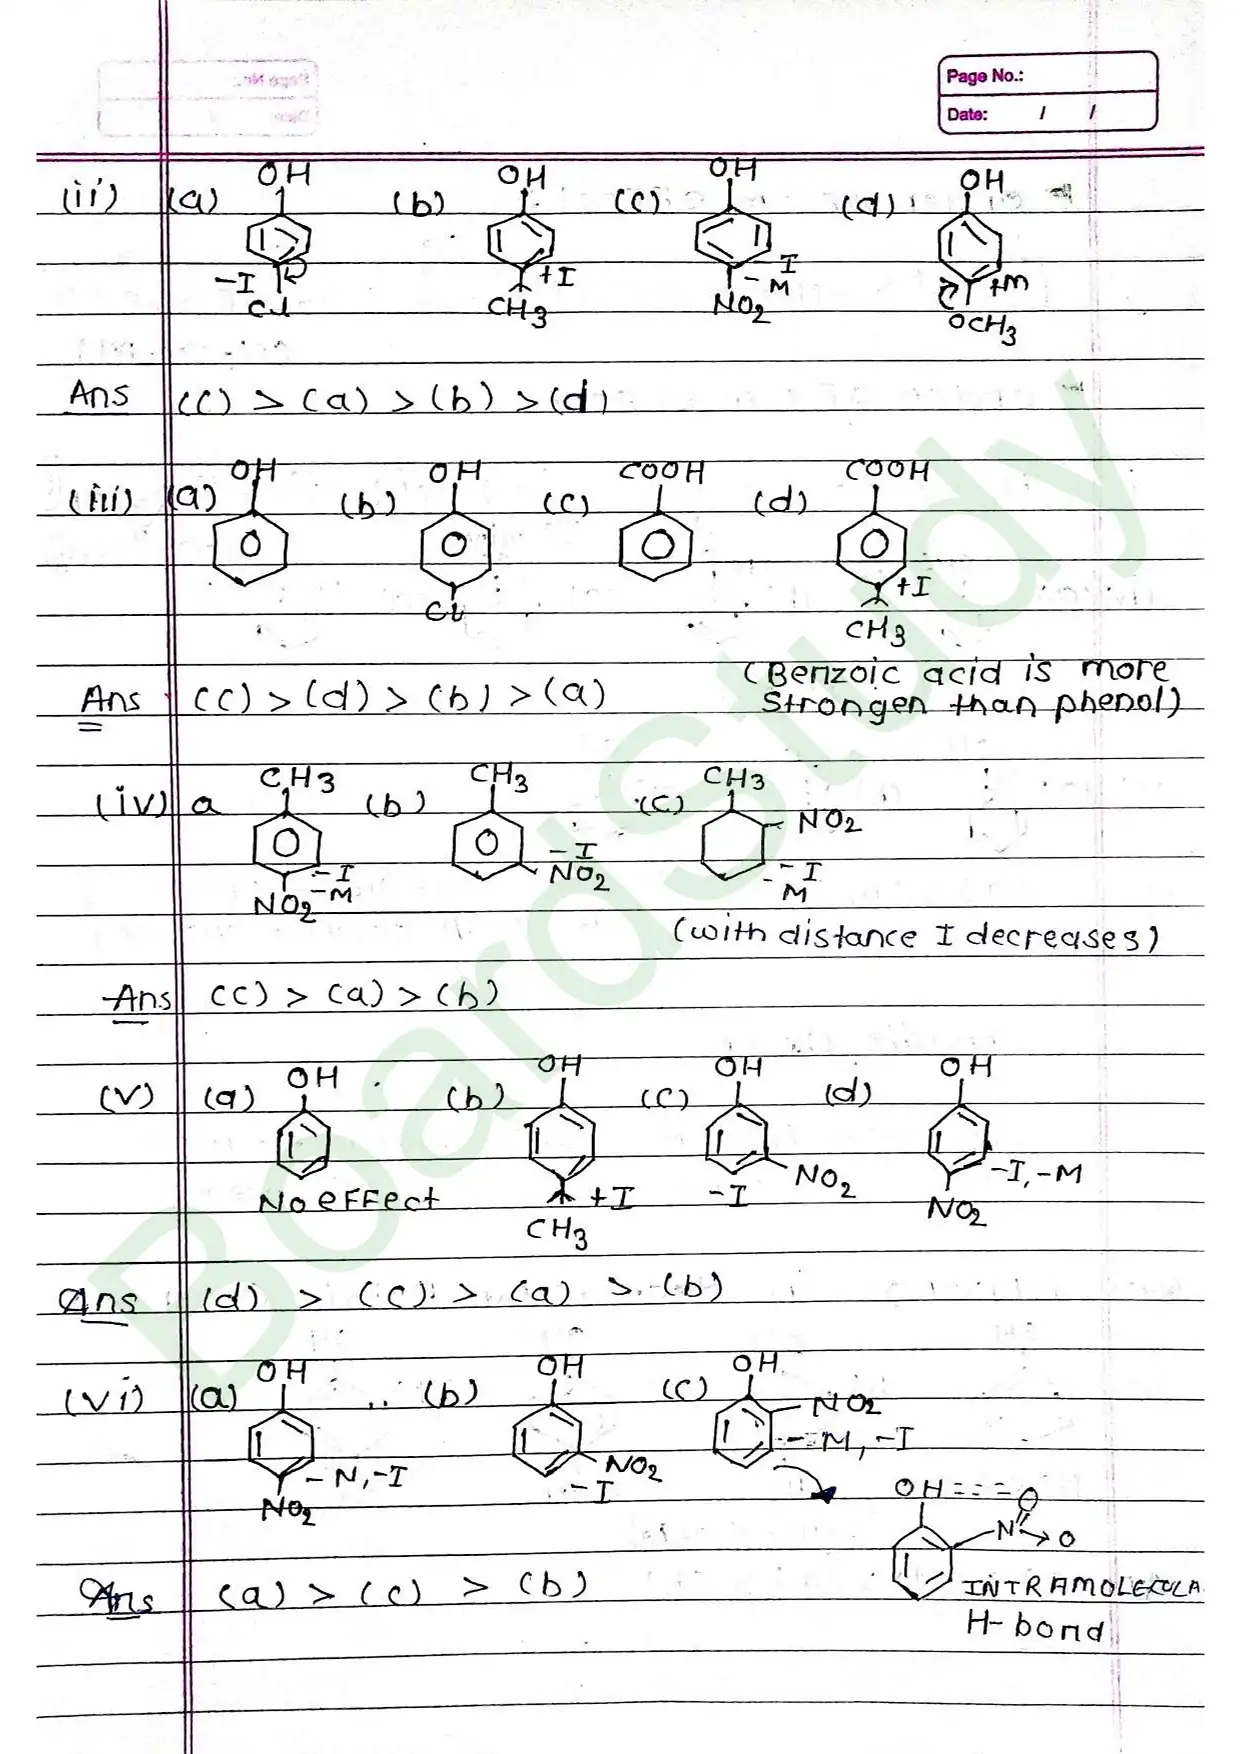 Page No.:
Date: / /
(ii) (a) OH (b) OH (c) OH (d) OH
-I Cl +I CH3 -I -M NO2 +m OCH3
Ans (c) > (a) > (b) > (d)
(iii) (a) OH (b) OH (c) COOH (d) COOH
Cl +I CH3
(Benzoic acid is more
Ans (c) > (d) > (b) > (a) Strongen than phenol)
(iv) a CH3 (b) CH3 (c) CH3 NO2
-I -M NO2 -I NO2 -I -M
(with distance I decreases)
Ans (c) > (a) > (b)
(v) (a) OH (b) OH (c) OH (d) OH
No eFFect +I CH3 -I NO2 -I, -M NO2
Ans (d) > (c) > (a) > (b)
(vi) (a) OH (b) OH (c) OH NO2
-N, -I NO2 -I NO2 -M, -I
OH O
N O
Ans (a) > (c) > (b) INTRAMOLECULA
H-bond
BoardStudy